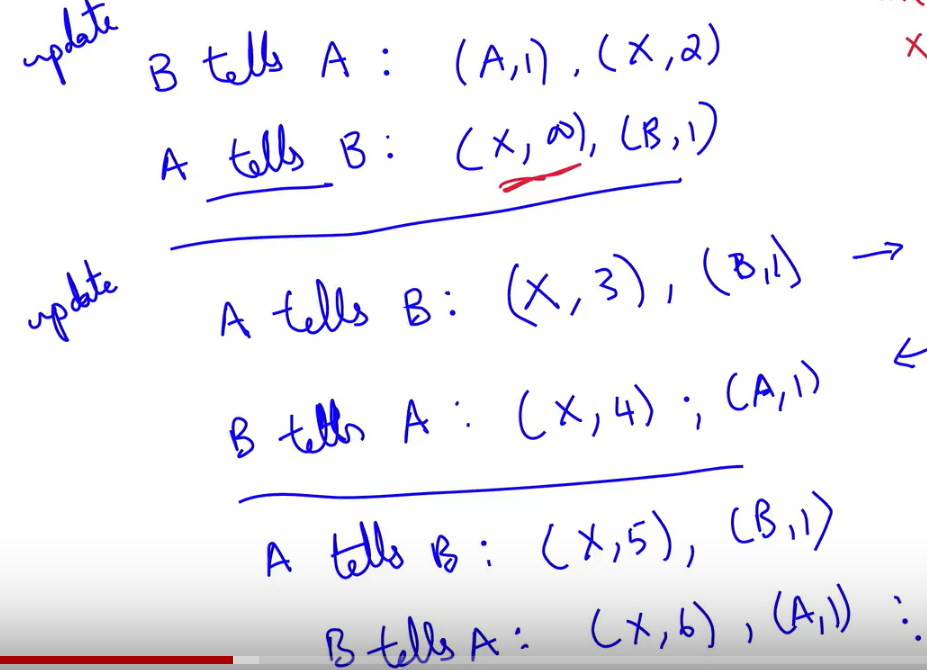 update
B tells A : (A,1) , (X,2)
x
A tells B : (X,∞), (B,1)
update
A tells B : (X,3), (B,1) →
←
B tells A : (X,4) ; (A,1)
A tells B : (X,5), (B,1)
B tells A : (X,6), (A,1) :.